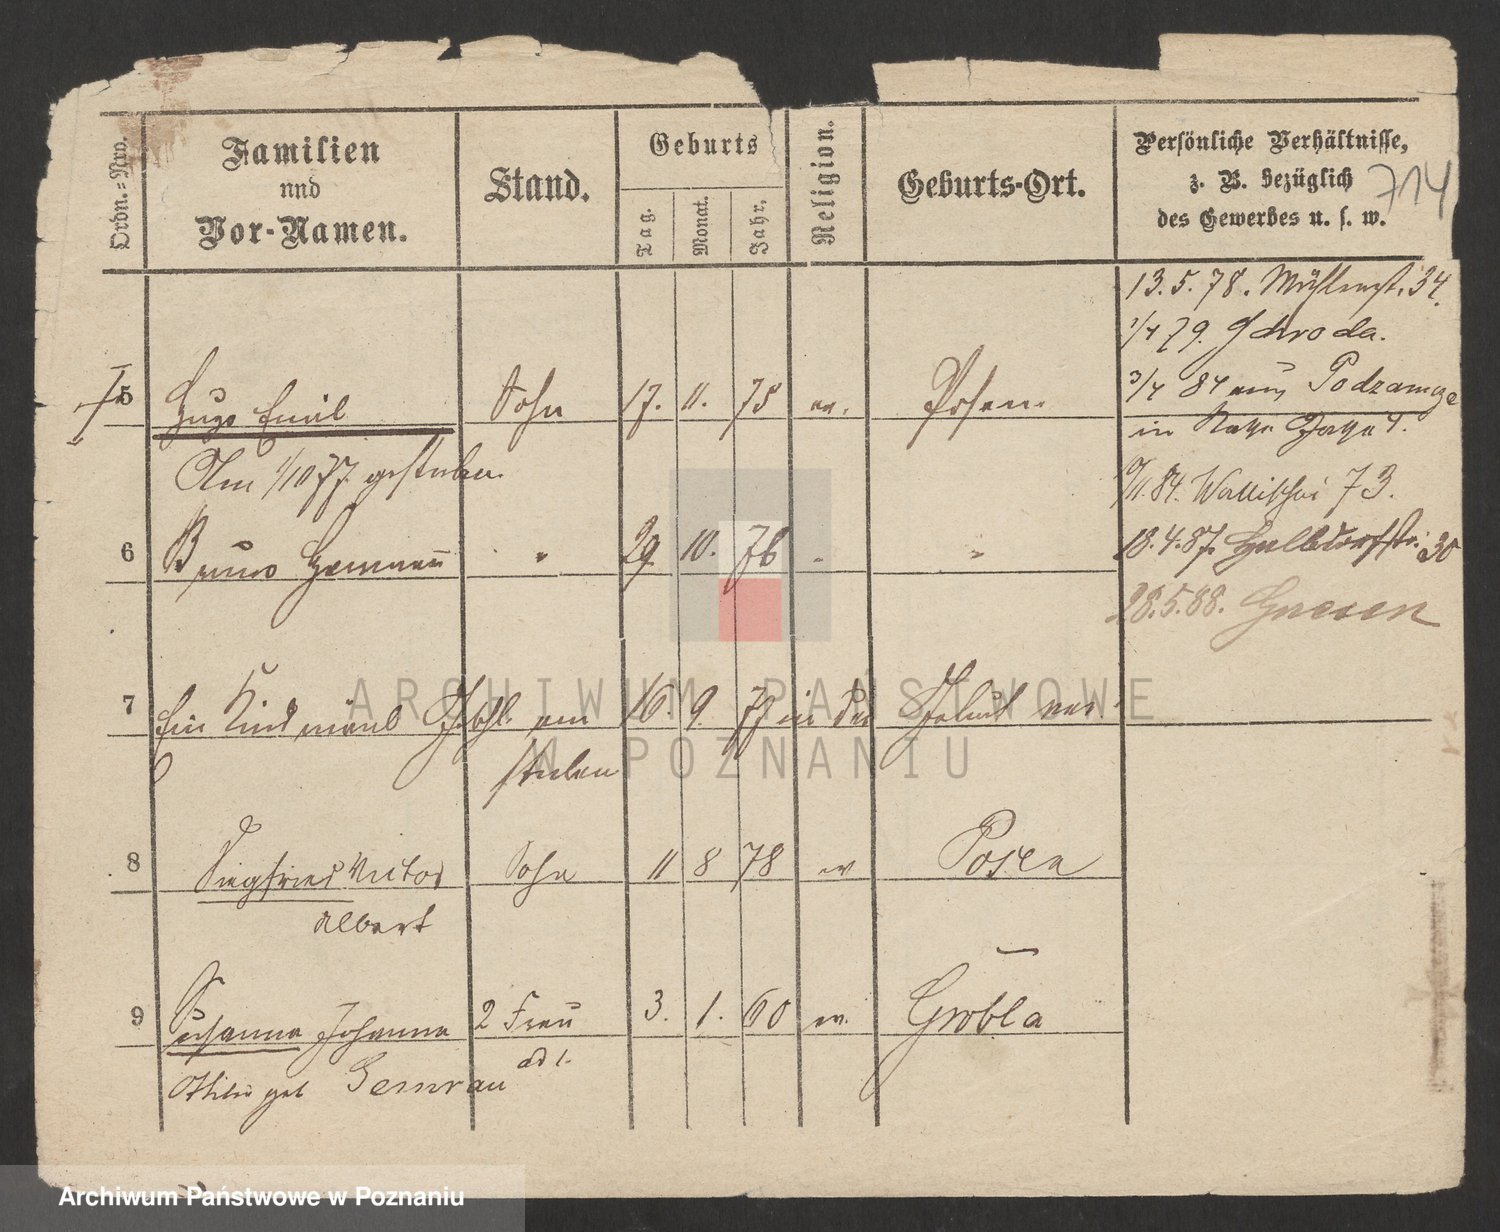 Ordn.=Nro.
Familien
und
Vor-Namen.
Stand.
Geburts
Tag.
Monat.
Jahr.
Religion.
Geburts-Ort.
Persönliche Verhältnisse,
z. B. bezüglich
des Gewerbes u. s. w.
714
13.5.78. Mühlenst. 34.
1/4 79. Schroda.
3/4 84 aus Podzamcze
in
5 Hugo Emil Sohn 17. 11. 75 ev. Posen
Am 1/10 77 gestorben.
/11.84. Wallischei 73.
6 Bruno Hermann " 29 10. 76 " "
18.4.87. Halbdorfstr. 30
28.5.88. Gnesen
7 Ein Kind männl Geschl. am 16. 9. 77 in der Geburt ver
storben
8 Siegfried Victor Sohn 11 8 78 ev Posen
Albert
9 Susanna Johanna 2 Frau 3. 1. 60 ev. Grobla
Ottilie geb Gemrau ad 1.
ARCHIWUM PAŃSTWOWE
W POZNANIU
Archiwum Państwowe w Poznaniu